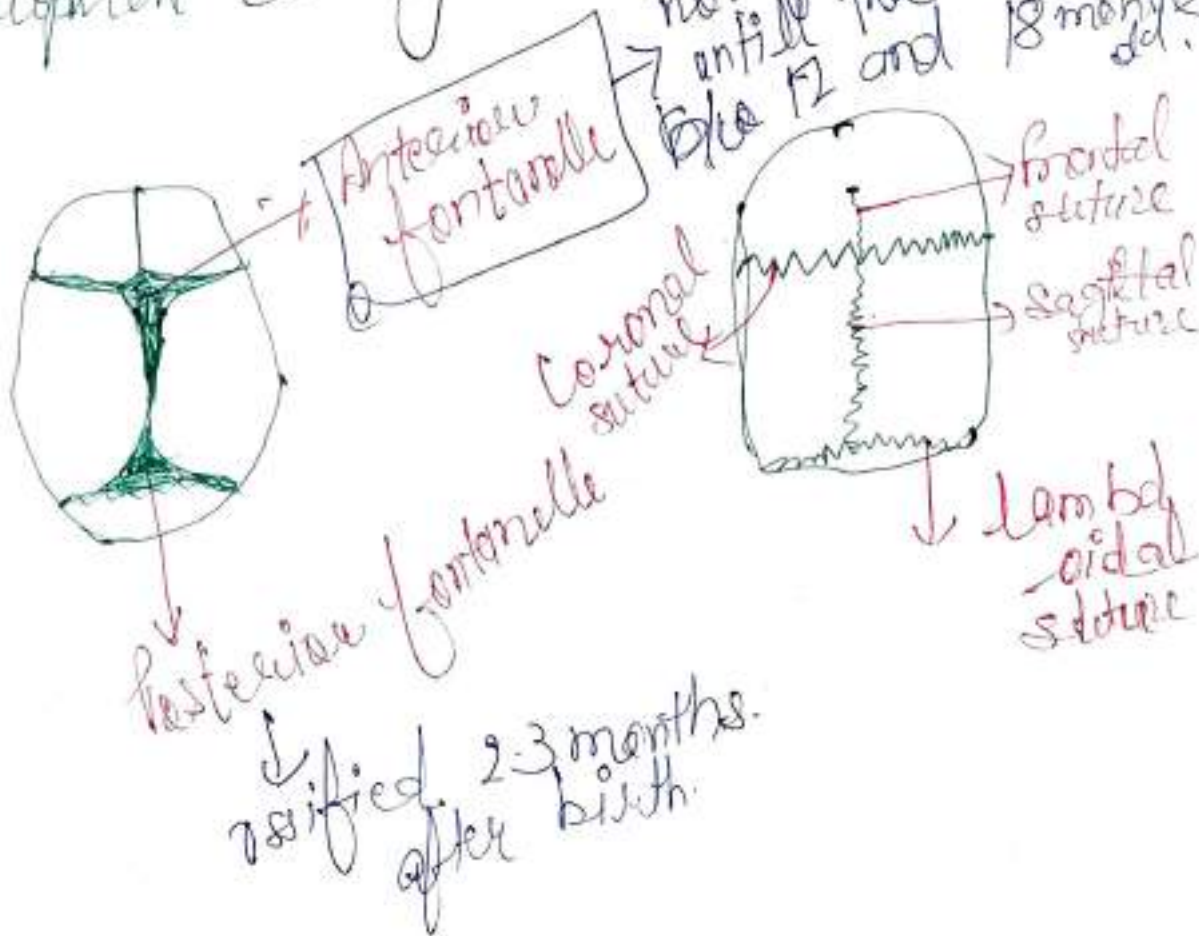 Anterior
fontanelle
antill
b/w 12 and 18 months
old.
frontal
suture
Sagittal
suture
Coronal
suture
lambd
-oidal
suture
Posterior fontanelle
ossified 2-3 months
after birth.